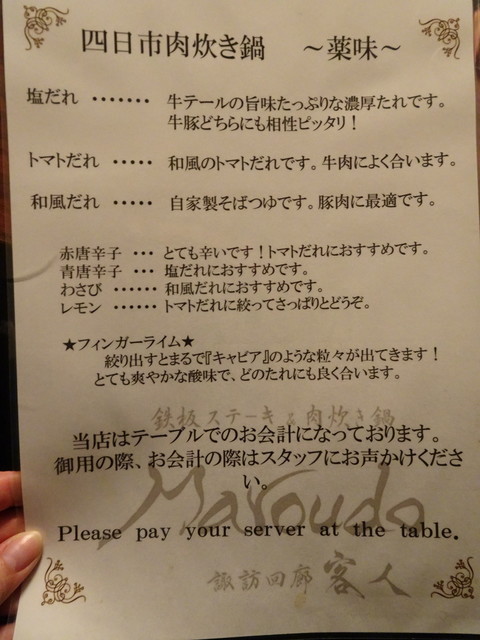 四日市肉炊き鍋　～薬味～
塩だれ ‥‥‥‥ 牛テールの旨味たっぷりな濃厚たれです。
牛豚どちらにも相性ピッタリ！
トマトだれ ‥‥‥ 和風のトマトだれです。牛肉によく合います。
和風だれ ‥‥‥ 自家製そばつゆです。豚肉に最適です。
赤唐辛子 … とても辛いです！トマトだれにおすすめです。
青唐辛子 … 塩だれにおすすめです。
わさび …… 和風だれにおすすめです。
レモン …… トマトだれに絞ってさっぱりとどうぞ。
★フィンガーライム★
絞り出すとまるで『キャビア』のような粒々が出てきます！
とても爽やかな酸味で、どのたれにも良く合います。
鉄板ステーキ & 肉炊き鍋
当店はテーブルでのお会計になっております。
御用の際、お会計の際はスタッフにお声かけくださ
い。
Maroudo
Please pay your server at the table.
諏訪回廊 客人